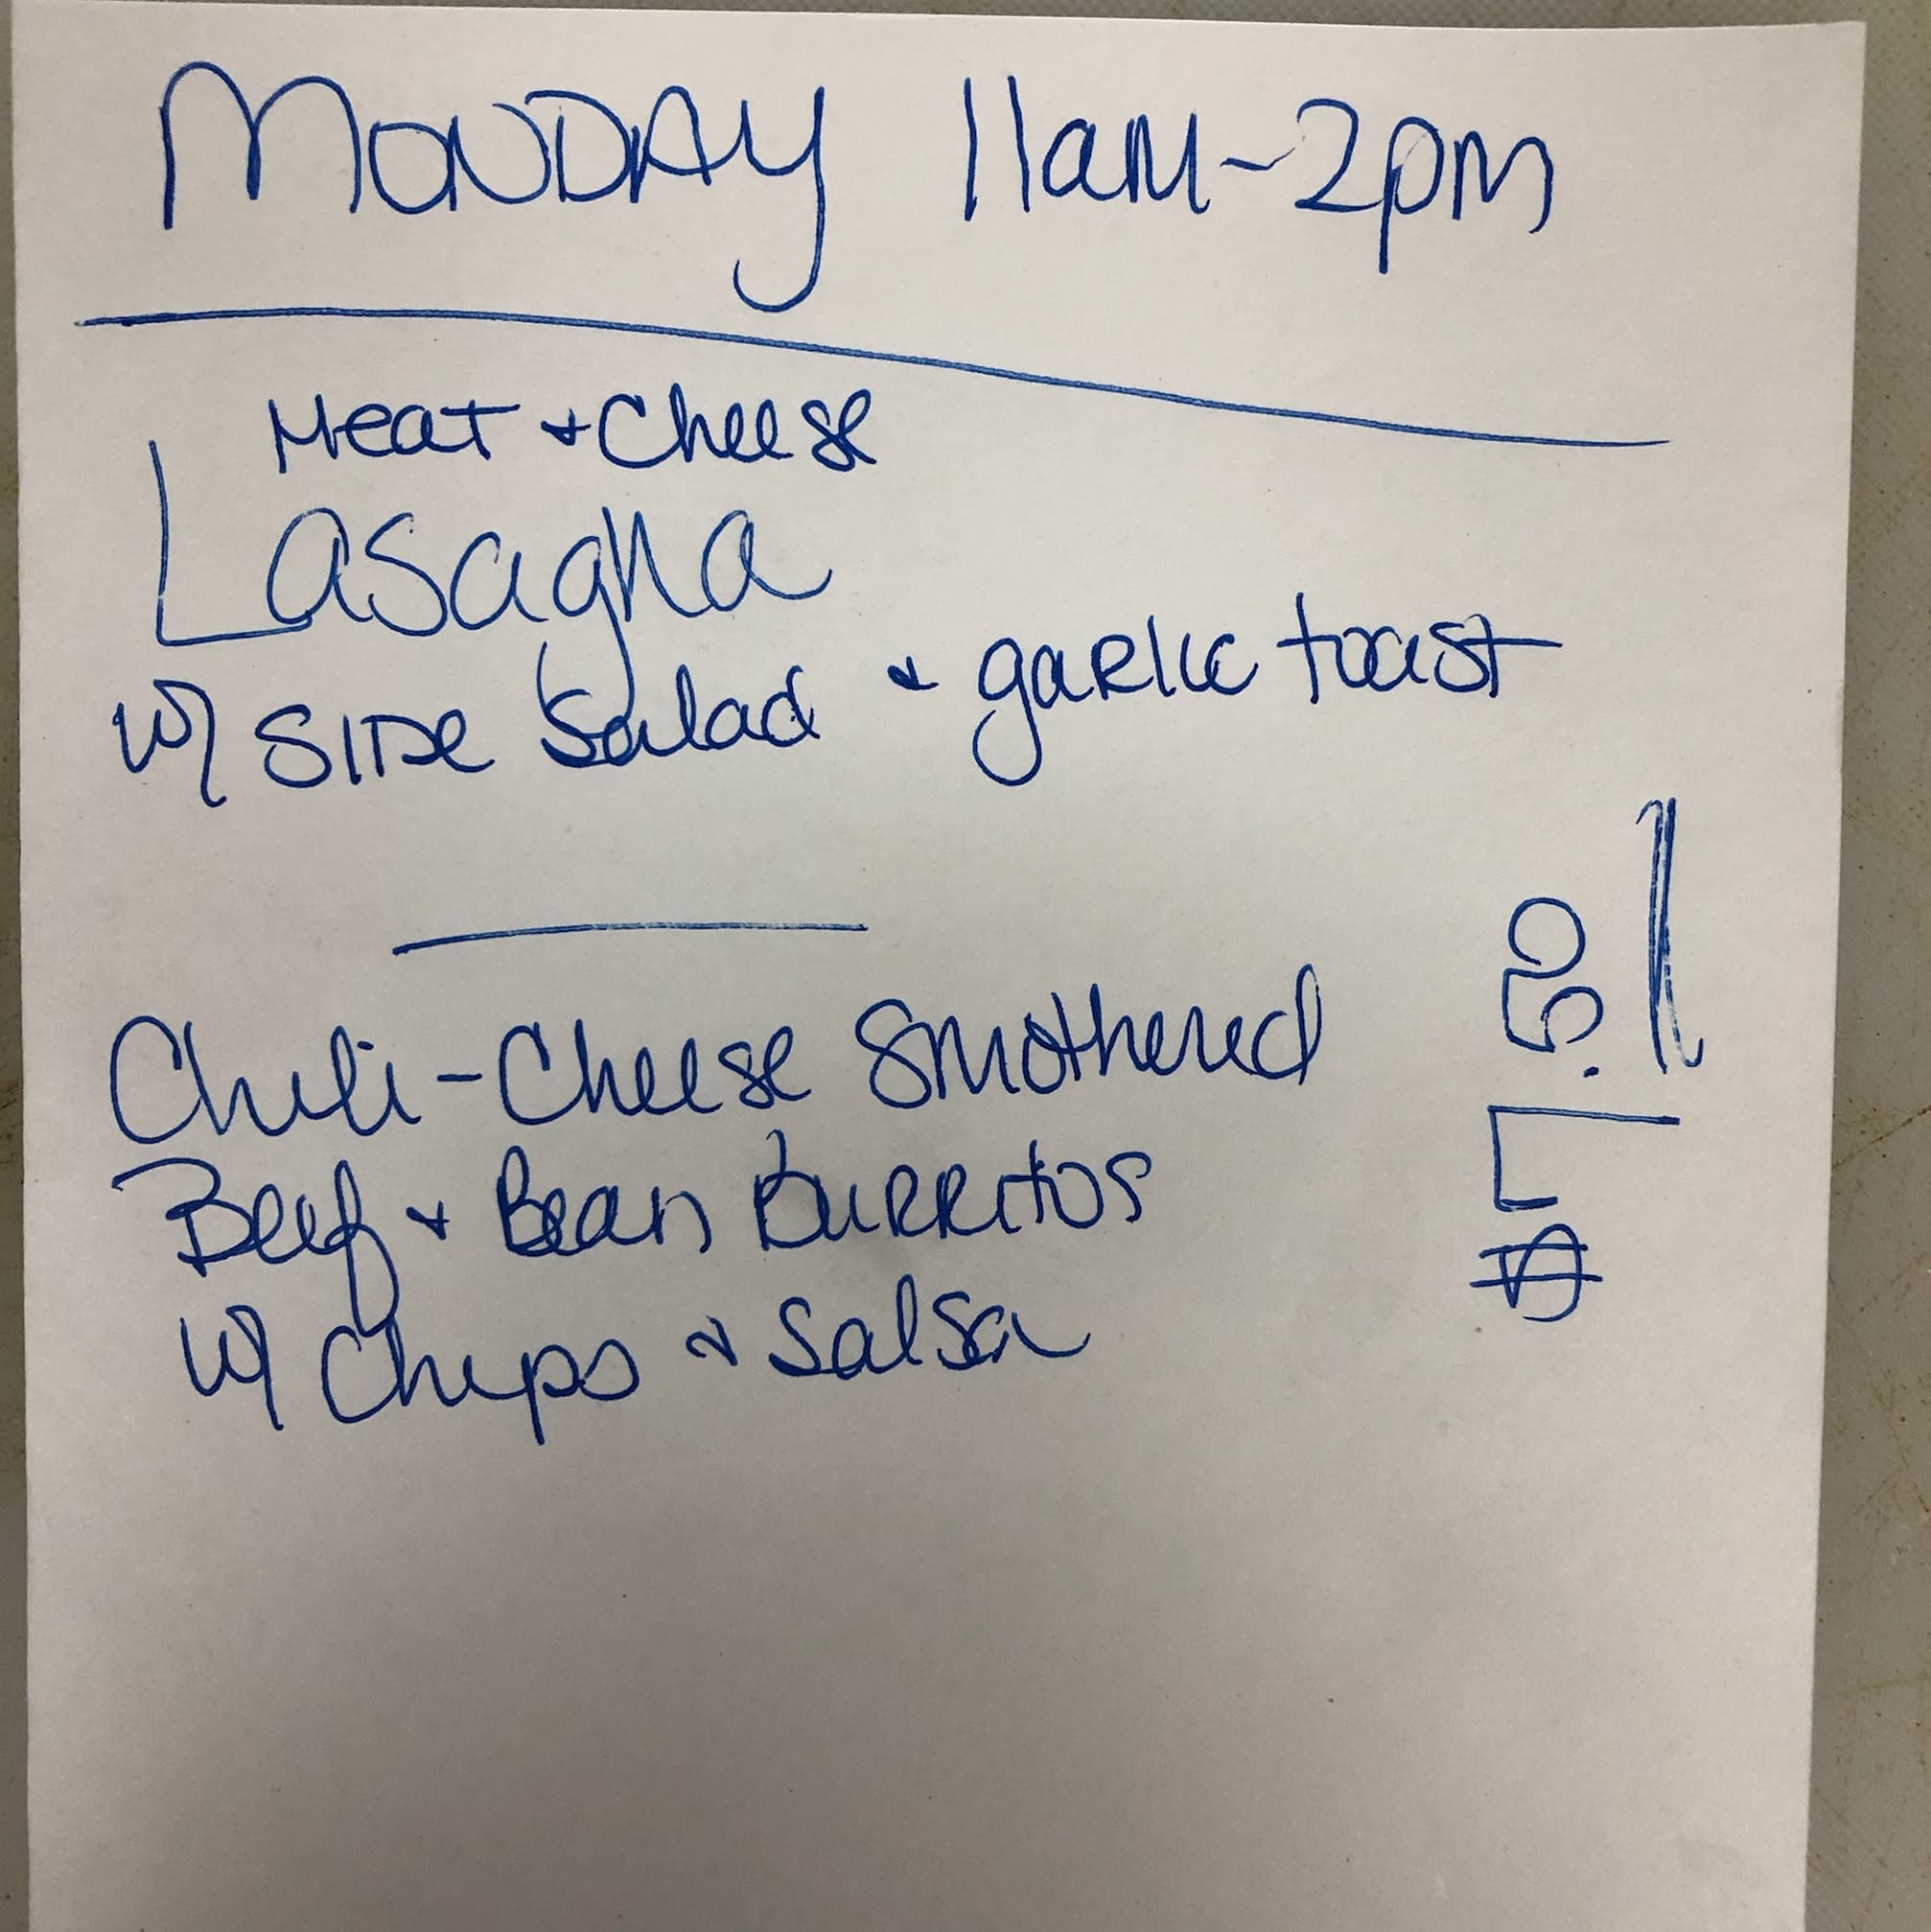 MONDAY 11am-2pm
Meat + Cheese
Lasagna
w/ SIDe Salad + gaRlic toast
Chili-Cheese Smothered
Beef + Bean BuRRitos
w/ Chips & Salsa
$7.50